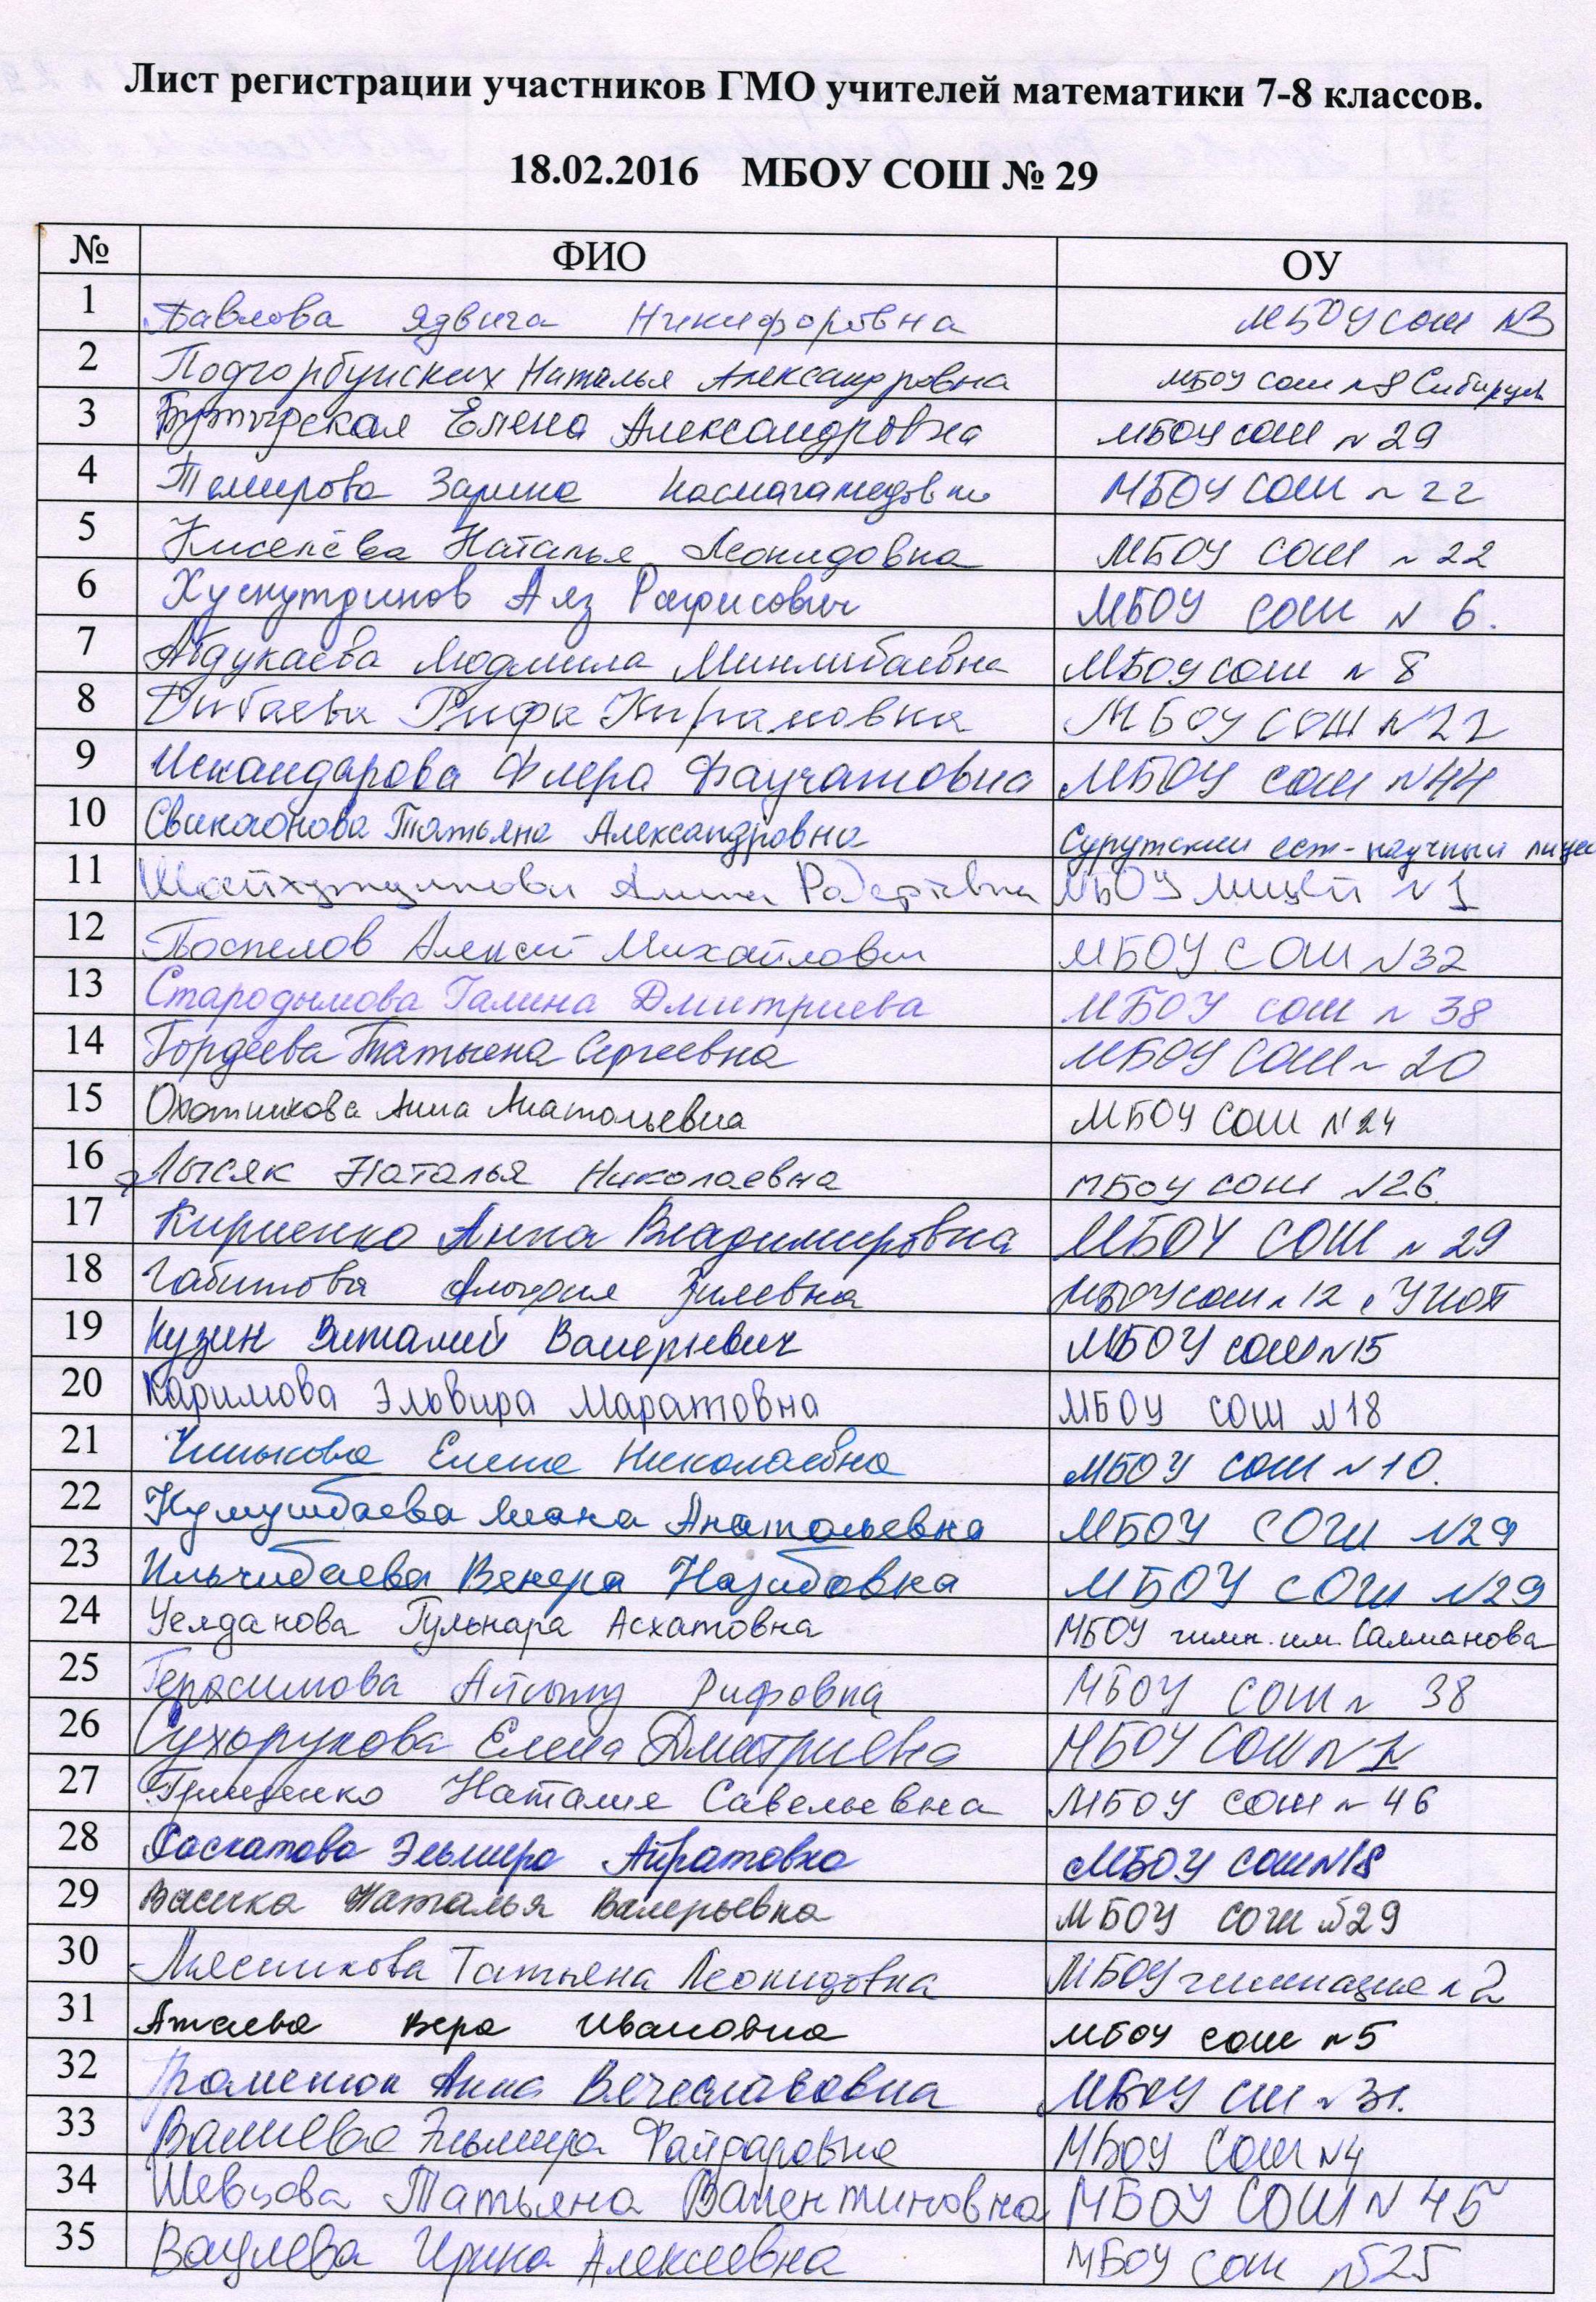 Лист регистрации участников ГМО учителей математики 7-8 классов.
18.02.2016 МБОУ СОШ № 29
№ ФИО ОУ
1 Павлова Ядвига Никифоровна МБОУ СОШ №3
2 Подгорбунских Наталья Александровна МБОУ СОШ №8 Сибирцева
3 Бутырская Елена Александровна МБОУ СОШ №29
4 Темирова Зарина МБОУ СОШ №22
5 Киселёва Наталья Леонидовна МБОУ СОШ №22
6 Хуснутдинов Аяз Рафисович МБОУ СОШ №6.
7 Абдукаева Людмила Минлибаевна МБОУ СОШ №8
8 Рифа МБОУ СОШ №22
9 Искандарова Флера МБОУ СОШ №44
10 Татьяна Александровна Сургутский ест-научный лицей
11 МБОУ лицей №1
12 Поспелов Алексей Михайлович МБОУ СОШ №32
13 Стародымова Галина Дмитриева МБОУ СОШ №38
14 Гордеева Татьяна Сергеевна МБОУ СОШ №20
15 Охотникова Анна Анатольевна МБОУ СОШ №24
16 Лысяк Наталья Николаевна МБОУ СОШ №26
17 Кириенко Анна Владимировна МБОУ СОШ №29
18 Габитова МБОУ СОШ №12 с УИОП
19 Кузин Виталий Валерьевич МБОУ СОШ №15
20 Каримова Эльвира Маратовна МБОУ СОШ №18
21 Елена Николаевна МБОУ СОШ №10.
22 Кумушбаева Анатольевна МБОУ СОШ №29
23 Ильчибаева Венера Назибовна МБОУ СОШ №29
24 Уелданова Гульнара Асхатовна МБОУ гимн. им. Салманова
25 Герасимова Айсылу Рифовна МБОУ СОШ №38
26 Сухорукова Елена Дмитриевна МБОУ СОШ №1
27 Гриценко Наталие Савельевна МБОУ СОШ №46
28 Саскатова Эльмира Айратовна МБОУ СОШ №18
29 Наталья Валерьевна МБОУ СОШ №29
30 Мясникова Татьяна Леонидовна МБОУ гимназия №2
31 Атаева Вера Ивановна МБОУ СОШ №5
32 Анна Вячеславовна МБОУ СШ №31.
33 Валиева Эльмира МБОУ СОШ №4
34 Шевцова Татьяна Валентиновна МБОУ СОШ №45
35 Ваулева Ирина Алексеевна МБОУ СОШ №25